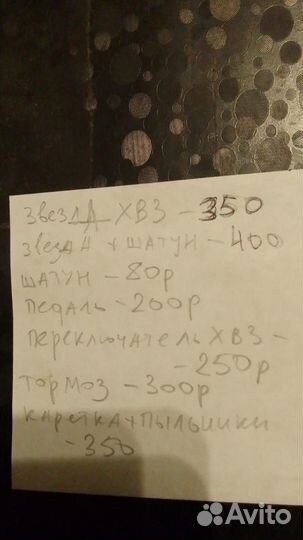 звезда ХВЗ - 350
звезда + шатун - 400
шатун - 80р
педаль - 200р
переключатель ХВЗ -
- 250р
тормоз - 300р
каретка+пыльники
- 350
Avito